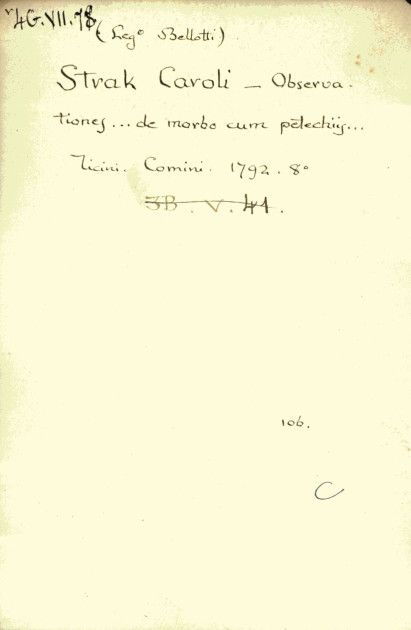 4G.VII.78 (Leg° Bellotti).
Strak Caroli – Observa-
tiones... de morbo cum petechiis...
Ticini. Comini. 1792. 8°
3B. V. 41.
106.
C